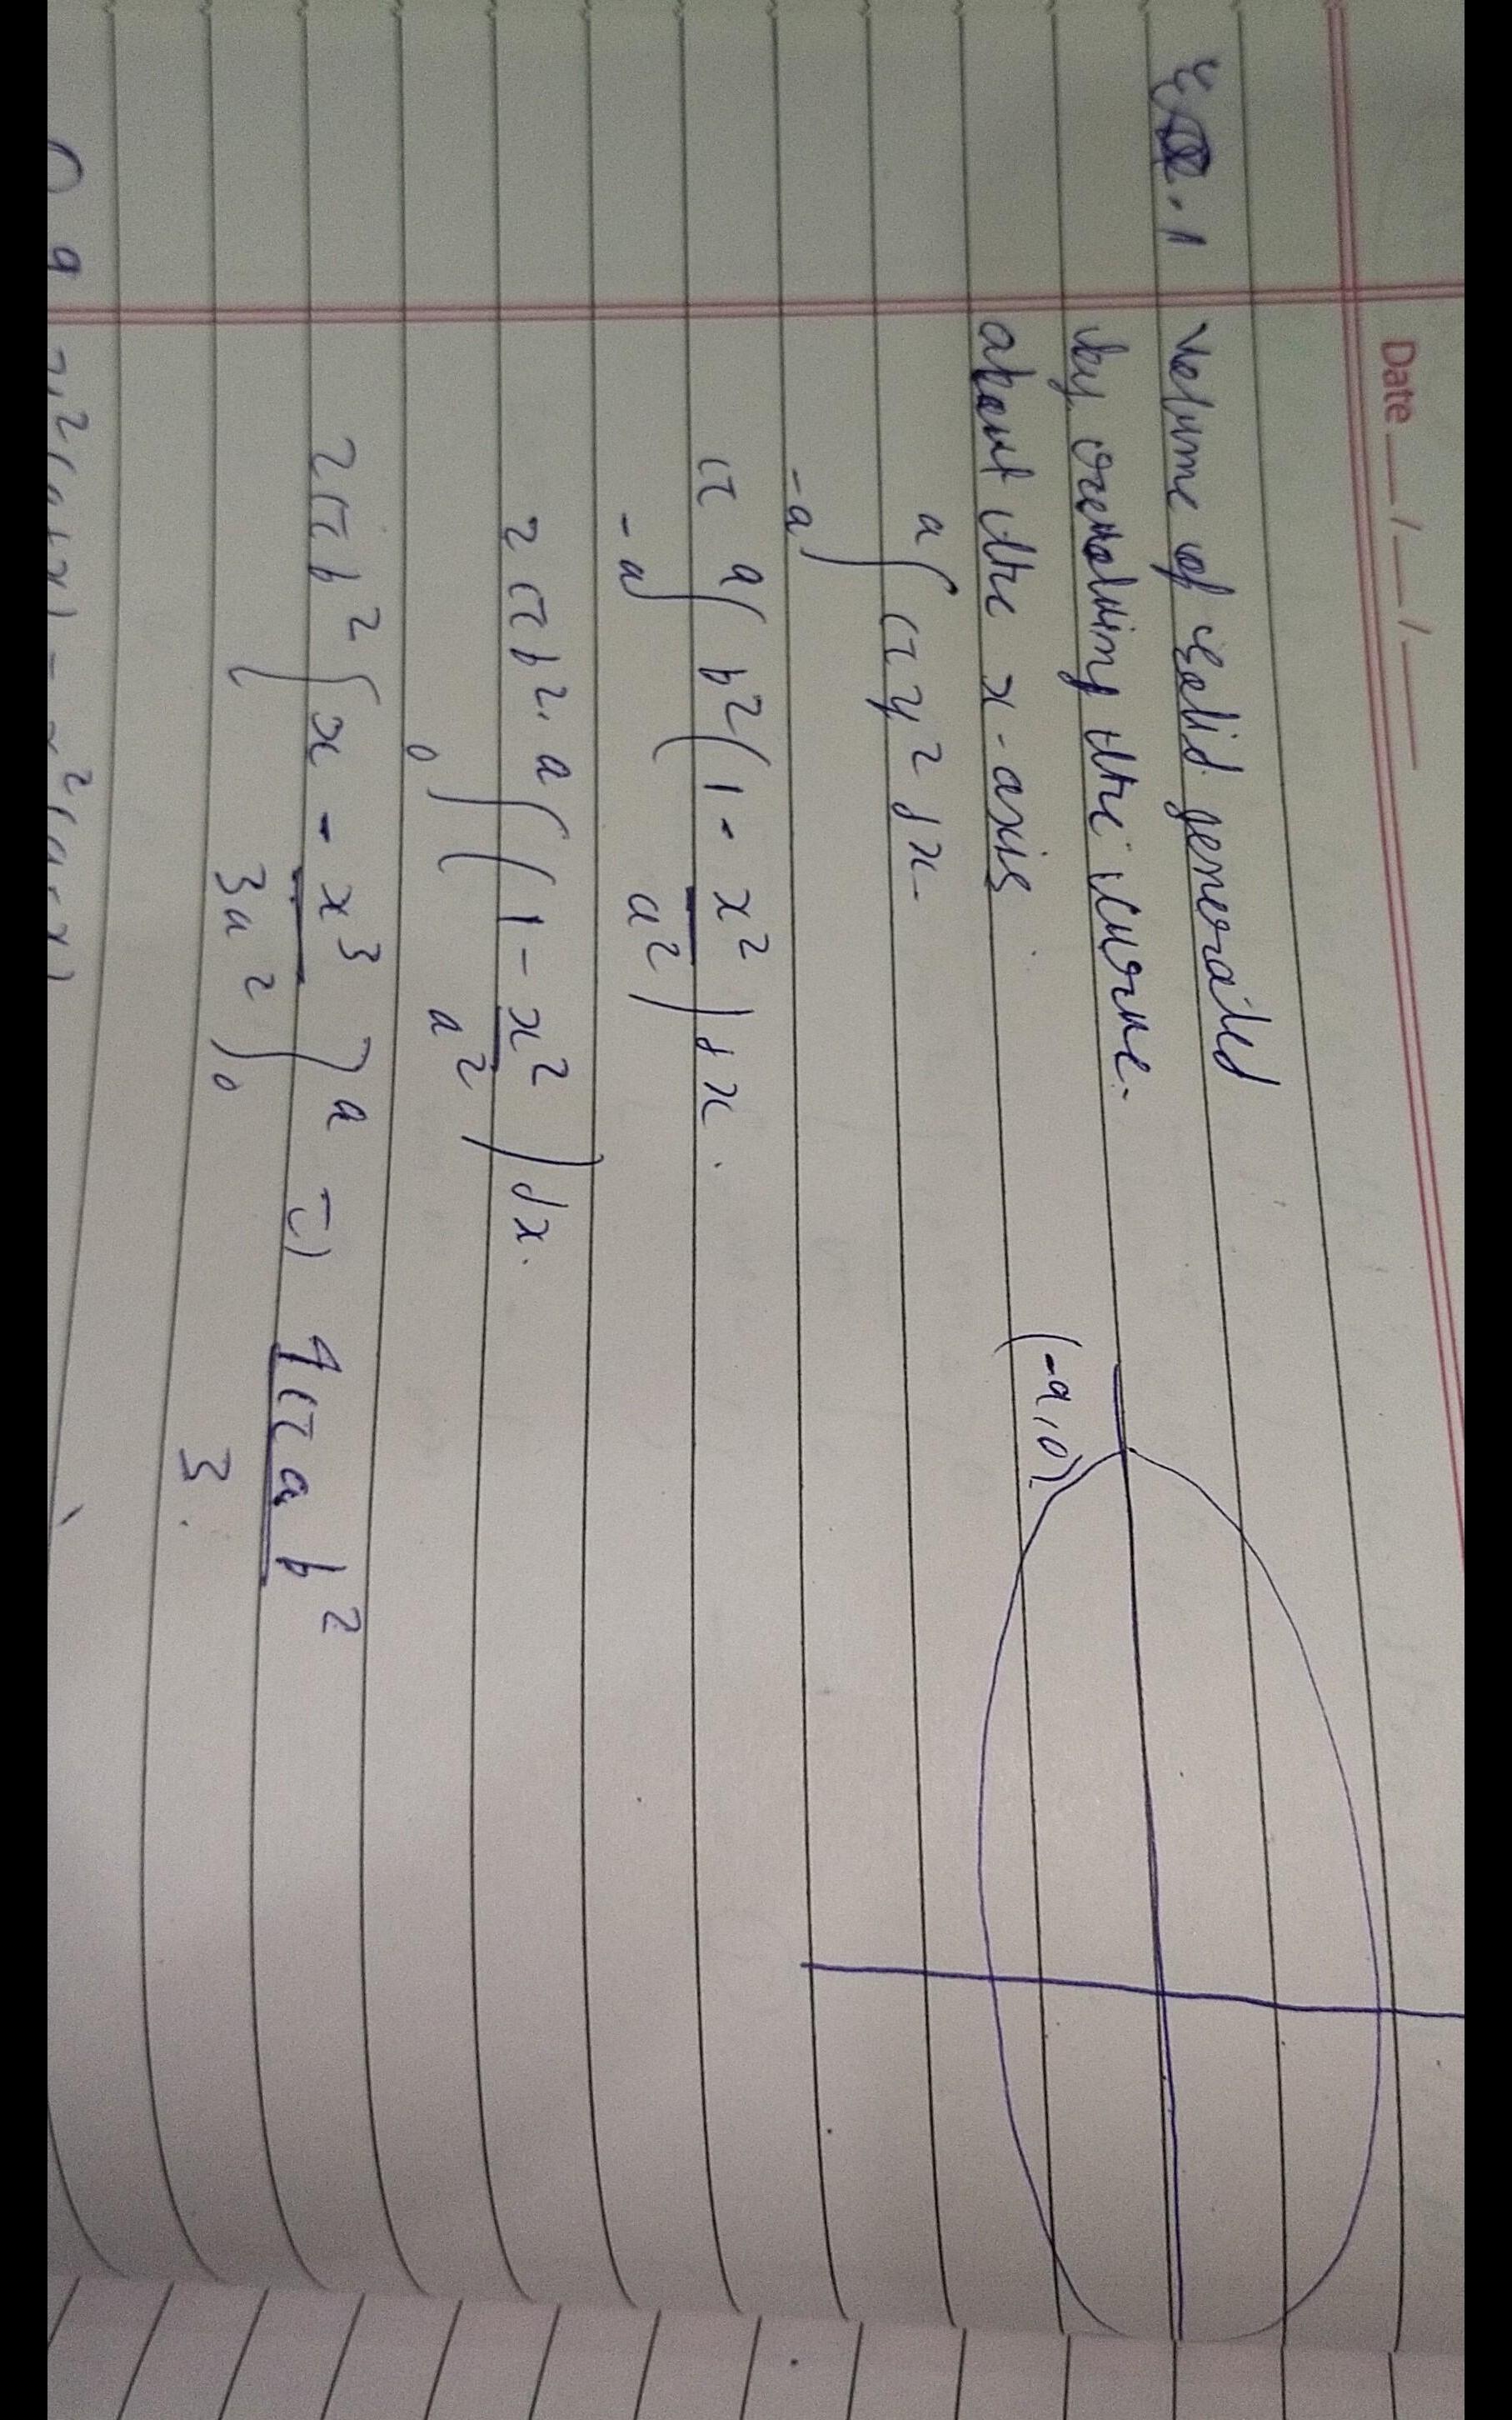 Date __/__/__
Q.1 Volume of solid generated
by revolving the curve.
about the x-axis
(-a,0)
a∫-a π y² dx.
π a∫-a b²(1 - x²/a²) dx.
2πb². a∫0 (1 - x²/a²) dx.
2πb² [x - x³/3a²]a0 => 4πab²/3.